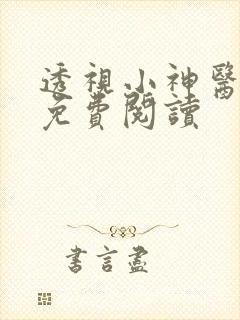 透視小神醫
免費閱讀
書言盡